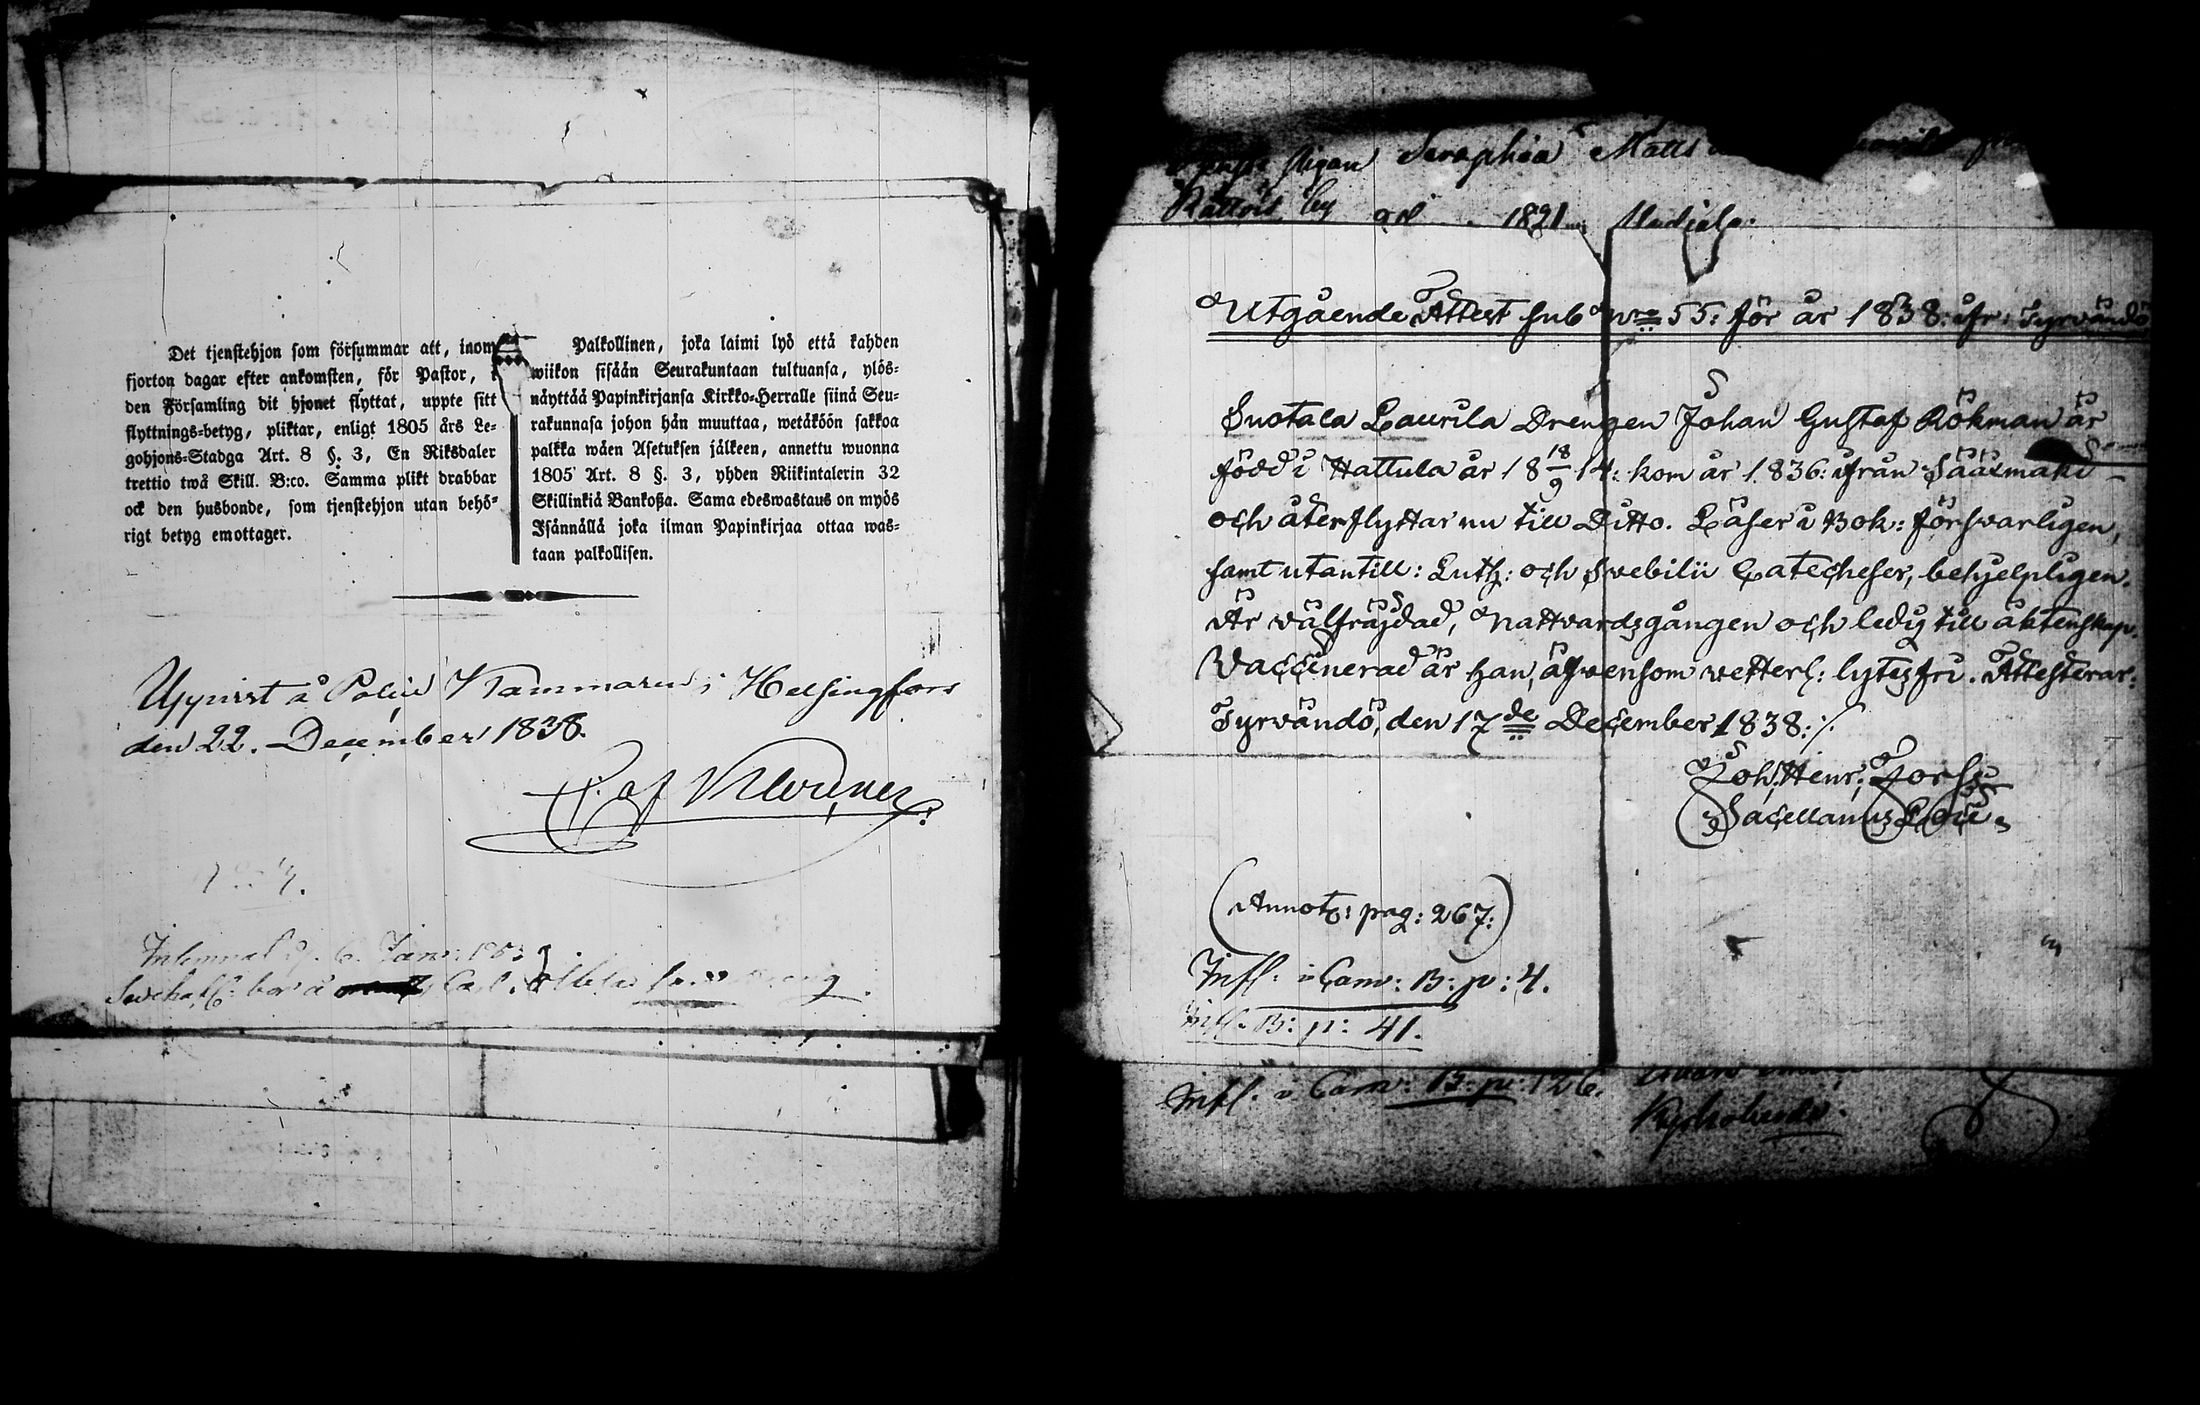 Det tjenstehjon som försummar att, inom
fjorton dagar efter ankomsten, för Pastor, i
den Församling dit hjonet flyttat, uppte sitt
flyttnings-betyg, pliktar, enligt 1805 års Le-
gohjons-Stadga Art. 8 §. 3, En Riksdaler
trettio twå Skill. B:co. Samma plikt drabbar
ock den husbonde, som tjenstehjon utan behö-
rigt betyg emottager.
Palkollinen, joka laimi lyö että kahden
wiikon sisään Seurakuntaan tultuansa, ylös-
näyttää Papinkirjansa Kirkko-Herralle siinä Seu-
rakunnasa johon hän muuttaa, wetäköön sakkoa
palkka wäen Asetuksen jälkeen, annettu wuonna
1805 Art. 8 §. 3, yhden Riikintalerin 32
Skillinkiä Bankoßa. Sama edeswastaus on myös
Isännällä joka ilman Papinkirjaa ottaa was-
taan palkollisen.
Uppvist å Police Kammaren i Helsingfors
den 22. December 1838.
Inlemnad d. 6. Janu:
bor å
Pigan Seraphia Matts
Rattois by 1821
Utgående Attest sub N:ro 55: för år 1838: ifr: Tyrvändö
Suotala Laurila Drengen Johan Gustaf Rökman är
född i Hattula år 18 18/9 14: kom år 1836: ifrån Sääxmäki
och återflyttar nu till Ditto. Läser i Bok: försvarligen,
samt utantill: Luth: och Svebilii Catecheser, behjelpligen.
Är välfräjdad, Nattvardsgången och ledig till äktenskap.
Vaccinerad är han, äfvensom vetterl: lytesfri. Attesterar:
Tyrvändö, den 17de December 1838:/.
Joh: Henr:
Sacellanus Loci.
(Annot: pag: 267:)
Infl: i Cam: B: p: 4.
Infl. B: p: 41.
Infl. i Cam: B: p: 126.